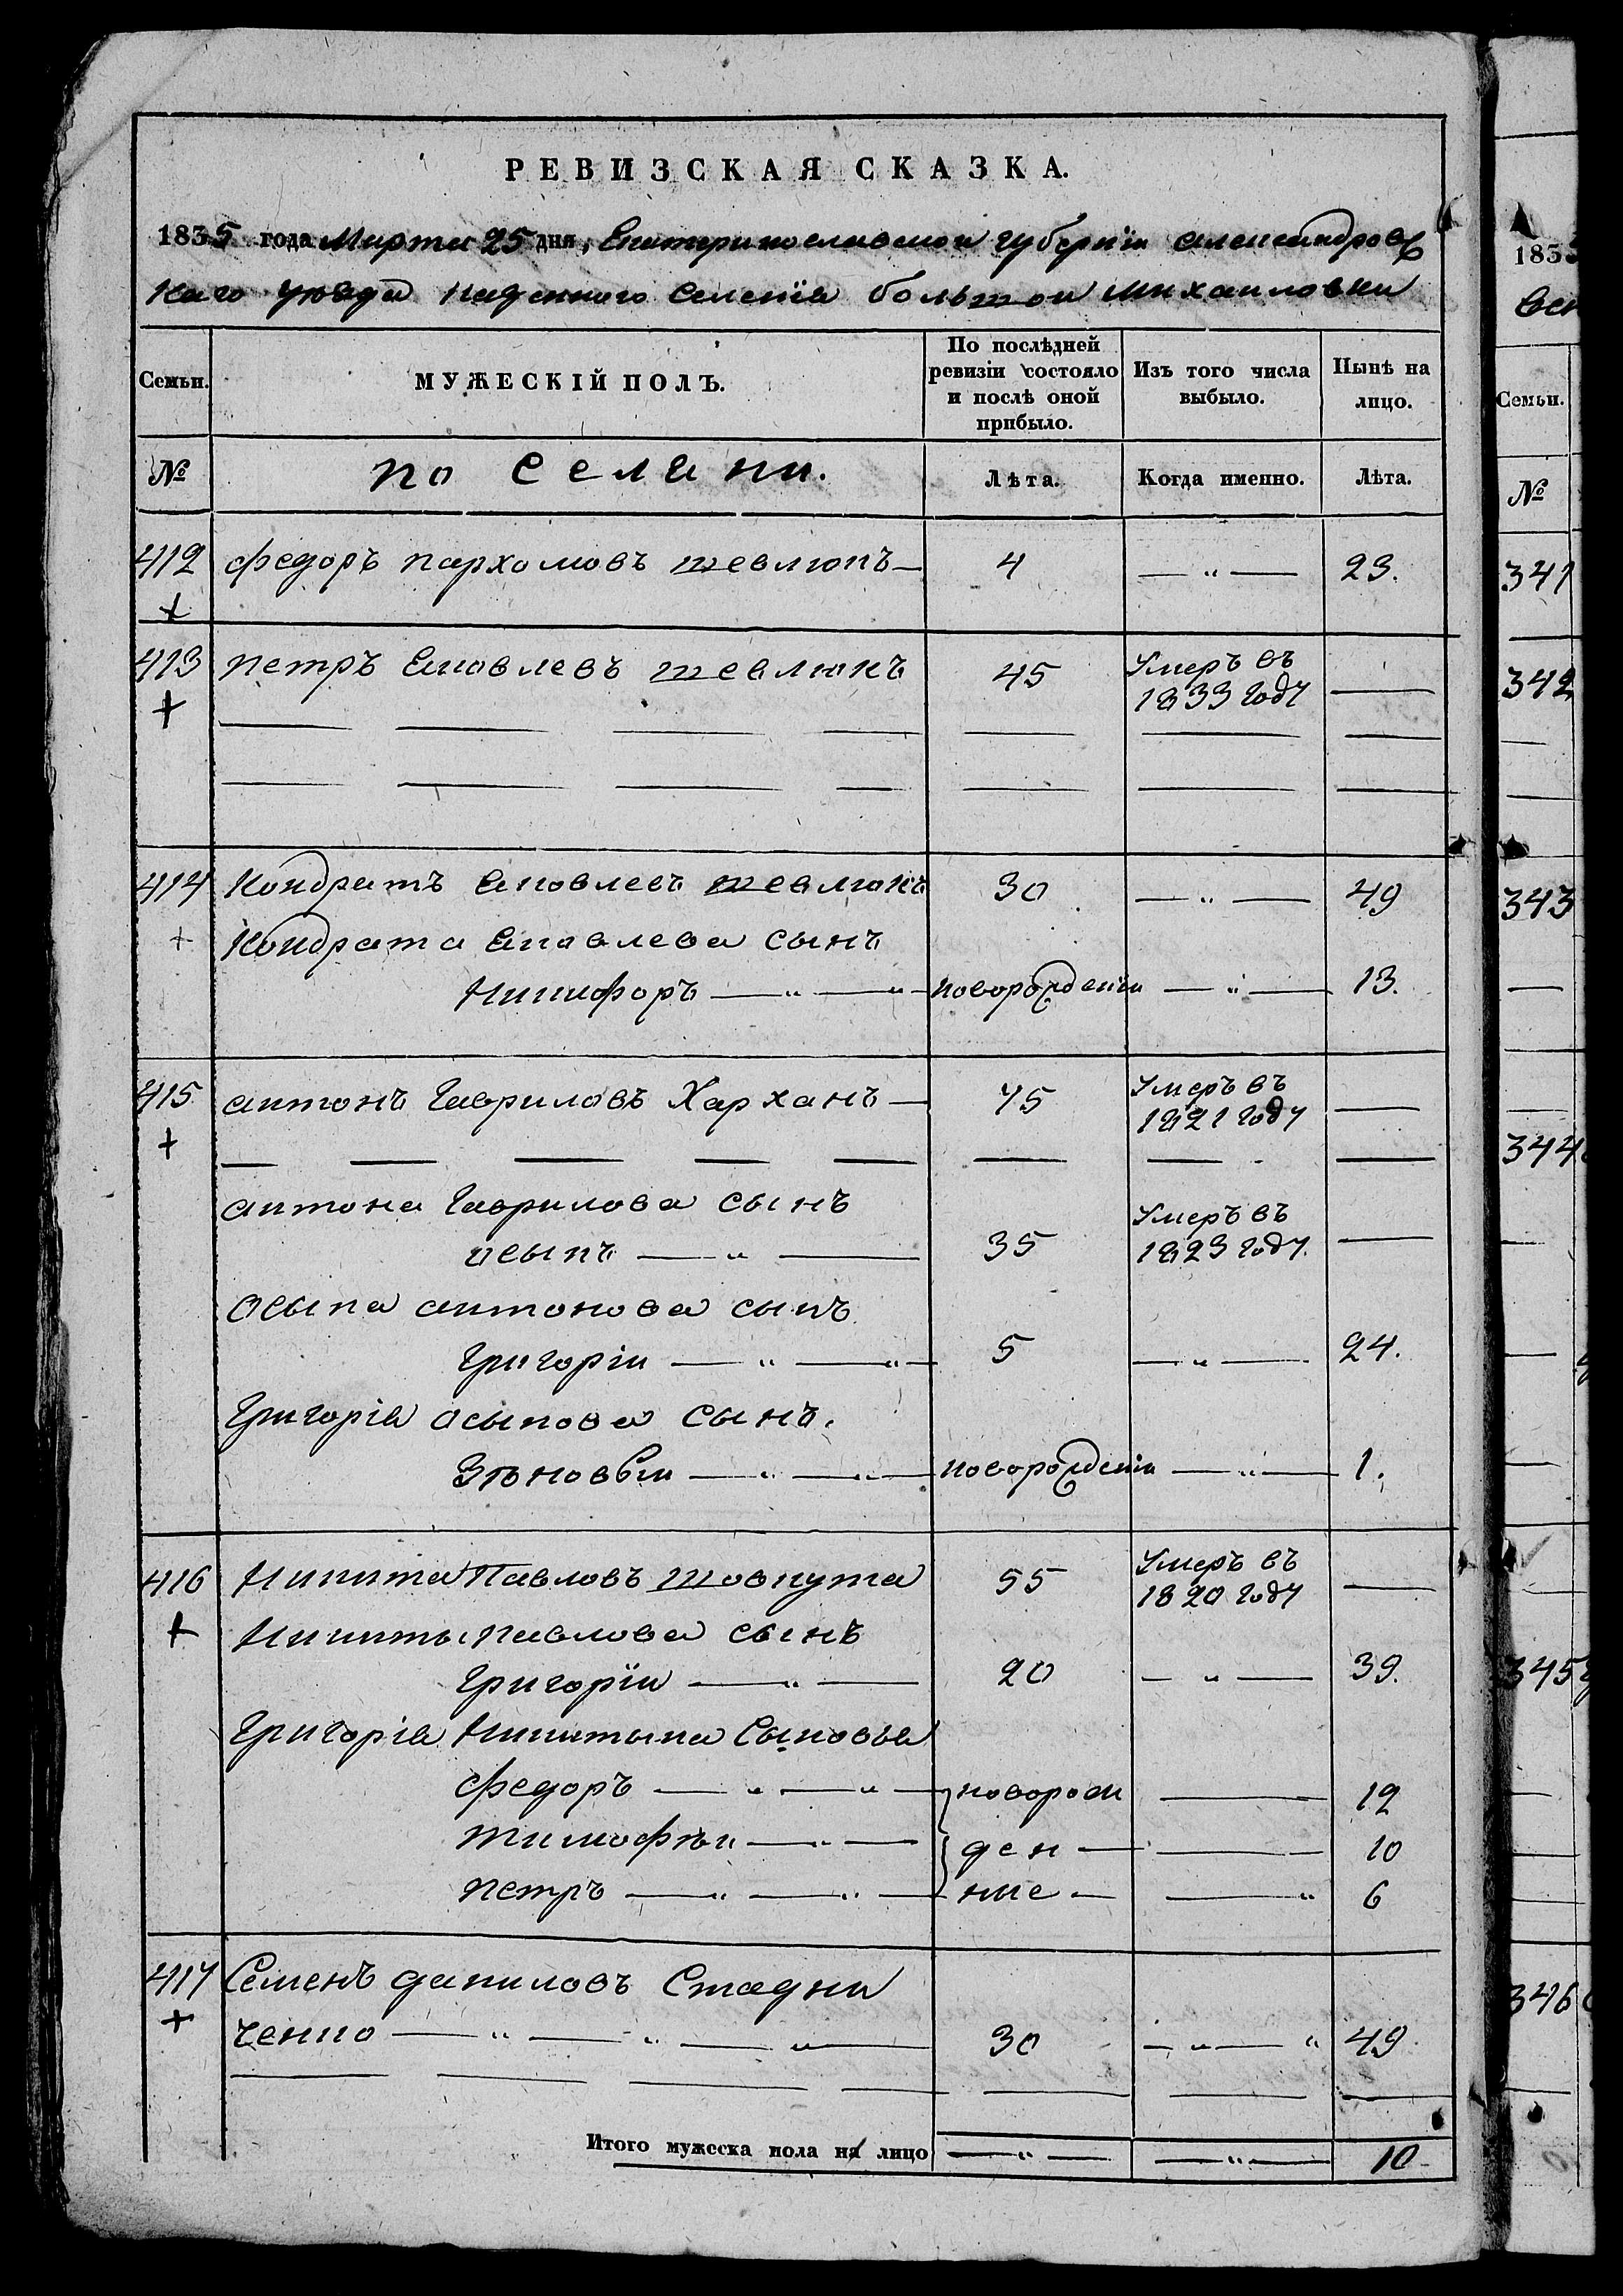 РЕВИЗСКАЯ СКАЗКА.
1835 года Марта 25 дня, Екатеринославской губернїи александровс
каго уѣзда казенного Селенїя большои михаиловки
Семьи. МУЖЕСКІЙ ПОЛЪ. По послѣдней ревизіи состояло и послѣ оной прибыло. Изъ того числа выбыло. Нынѣ на лицо.
№ поселяни. Лѣта. Когда именно. Лѣта.
412 федоръ пархомовъ шевлюкъ — 4 — " — 23.
413 петръ Яковлевъ шевлюкъ 45 Умеръ въ 1833 году —
414 Кондратъ Яковлевъ шевлюкъ 30 — " — 49
Кондрата Яковлева сынъ
Никифоръ — " — " — новорожденїи — " — 13.
415 антонъ Гавриловъ Харханъ — 75 Умеръ въ 1821 году —
антона Гаврилова сынъ
осыпъ — " — 35 Умеръ въ 1823 году. —
Осыпа антонова сынъ
Григоріи — " — " — 5 — " — 24.
Григорія осыпова сынъ.
Зѣновѣи — " — " — новорожденіи — " — 1.
416 Никита Павловъ шовкута 55 Умеръ въ 1820 году —
Никиты павлова сынъ
Григорїи — " — 20 — " — 39.
Григорія Никитына Сыновья
федоръ — " — " — новорож — 12
тимофѣи — " — ден — — 10
петръ — " — " — ные — — " 6
417 Семенъ даниловъ Стадни
ченко — " — " — " — 30 — " — " 49
Итого мужеска пола на лицо — " — — " — 10
1835
341
342
343
344
345
346
Семьи.
№